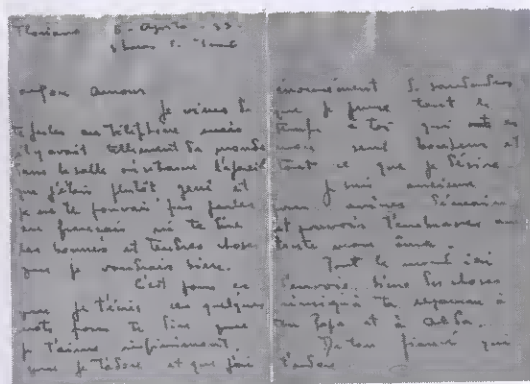 Floriano 6 - Agosto - 33 -
9 horas P. Tarde
Mon Amour
Je viens de
te parler au téléphone mais
il y avait tellement de monde
dans la salle où se trouve l'appareil
que j'étais plutôt gené et
je ne te pouvais pas parler
en français ni te dire
les bonnes et tendres choses
que je voudrais dire.
C'est pour ce
que je t'écris ces quelques
mots pour te dire que
je t'aime infiniment
que je t'adore et que j'ai
énormément de saudades
que je pense tout le
temps à toi qui es
mon seul bonheur et
tout ce que je désire
Je suis anxieux
pour arriver Demain
et pouvoir t'embrasser avec
toute mon âme.
Tout le monde ici
t'envoie bien des choses
ainsi qu'à ta maman à
ton Papa et à Alda.
De ton fiancé qui
t'adore